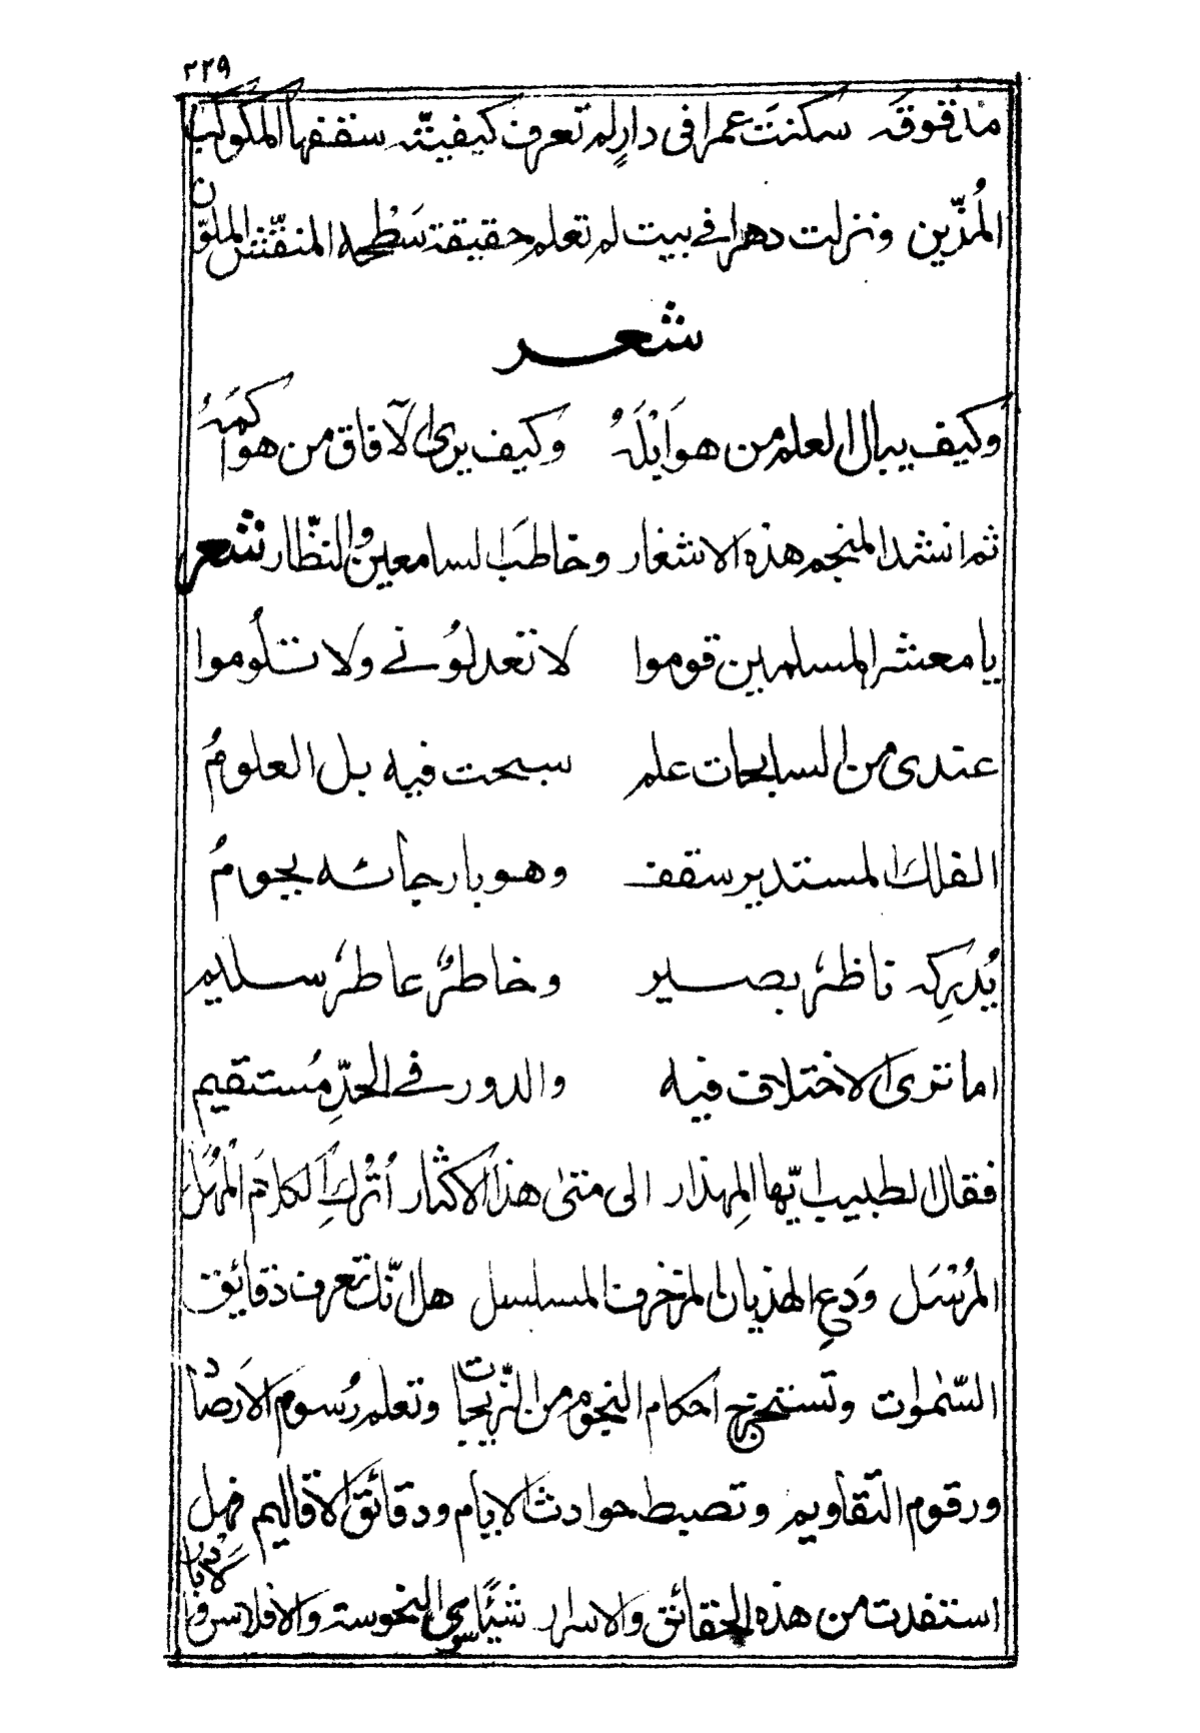 ٢٢٩
مذقوقه سكنت عمرا فى دارٍ لم تعرف كيفيّته سقفها المكوكب
المُزّين ونزلت دهرا فى بيت لم تعلم حقيقة سَطْحه المنقّش الملوّن
شعر
وكيف ينال العلم من هو اَبْلَهُ وكيف يرى الآفاق من هو اَكمَهُ
ثم انشد المنجم هذه الاشعار وخاطَبَ السامعين والنظّار شعر
يا معشر المسلمين قوموا لا تعدلُونى ولا تلُوموا
عندى من السابحات علم سبحت فيه بل العلومُ
الفلك المستدير سقف وهو بارجائه يجومُ
يُدرِكه ناظرٌ بصير وخاطرٌ عاطرٌ سليم
اما ترى الاختلاف فيه والدور فى الحدِّ مُستقيم
فقال الطبيب ايّها المِهذار الى متى هذا الاكثار اُتْركِ الكلامَ المُهْمَل
المُرْسَل وَدَعِ الهذيان المزخرف المسلسل هل انّك تعرف دقائق
السّمٰوات وتستخرج احكام النجوم من الزّيجات وتعلم رُسوم الاَرصاد
ورقوم التقاويم وتضبط حوادث الايام ودقائق الاقاليم فهل
استفدت من هذه الحقائق والاسرار شيئًا سوى النحوسة والافلاس والادبار